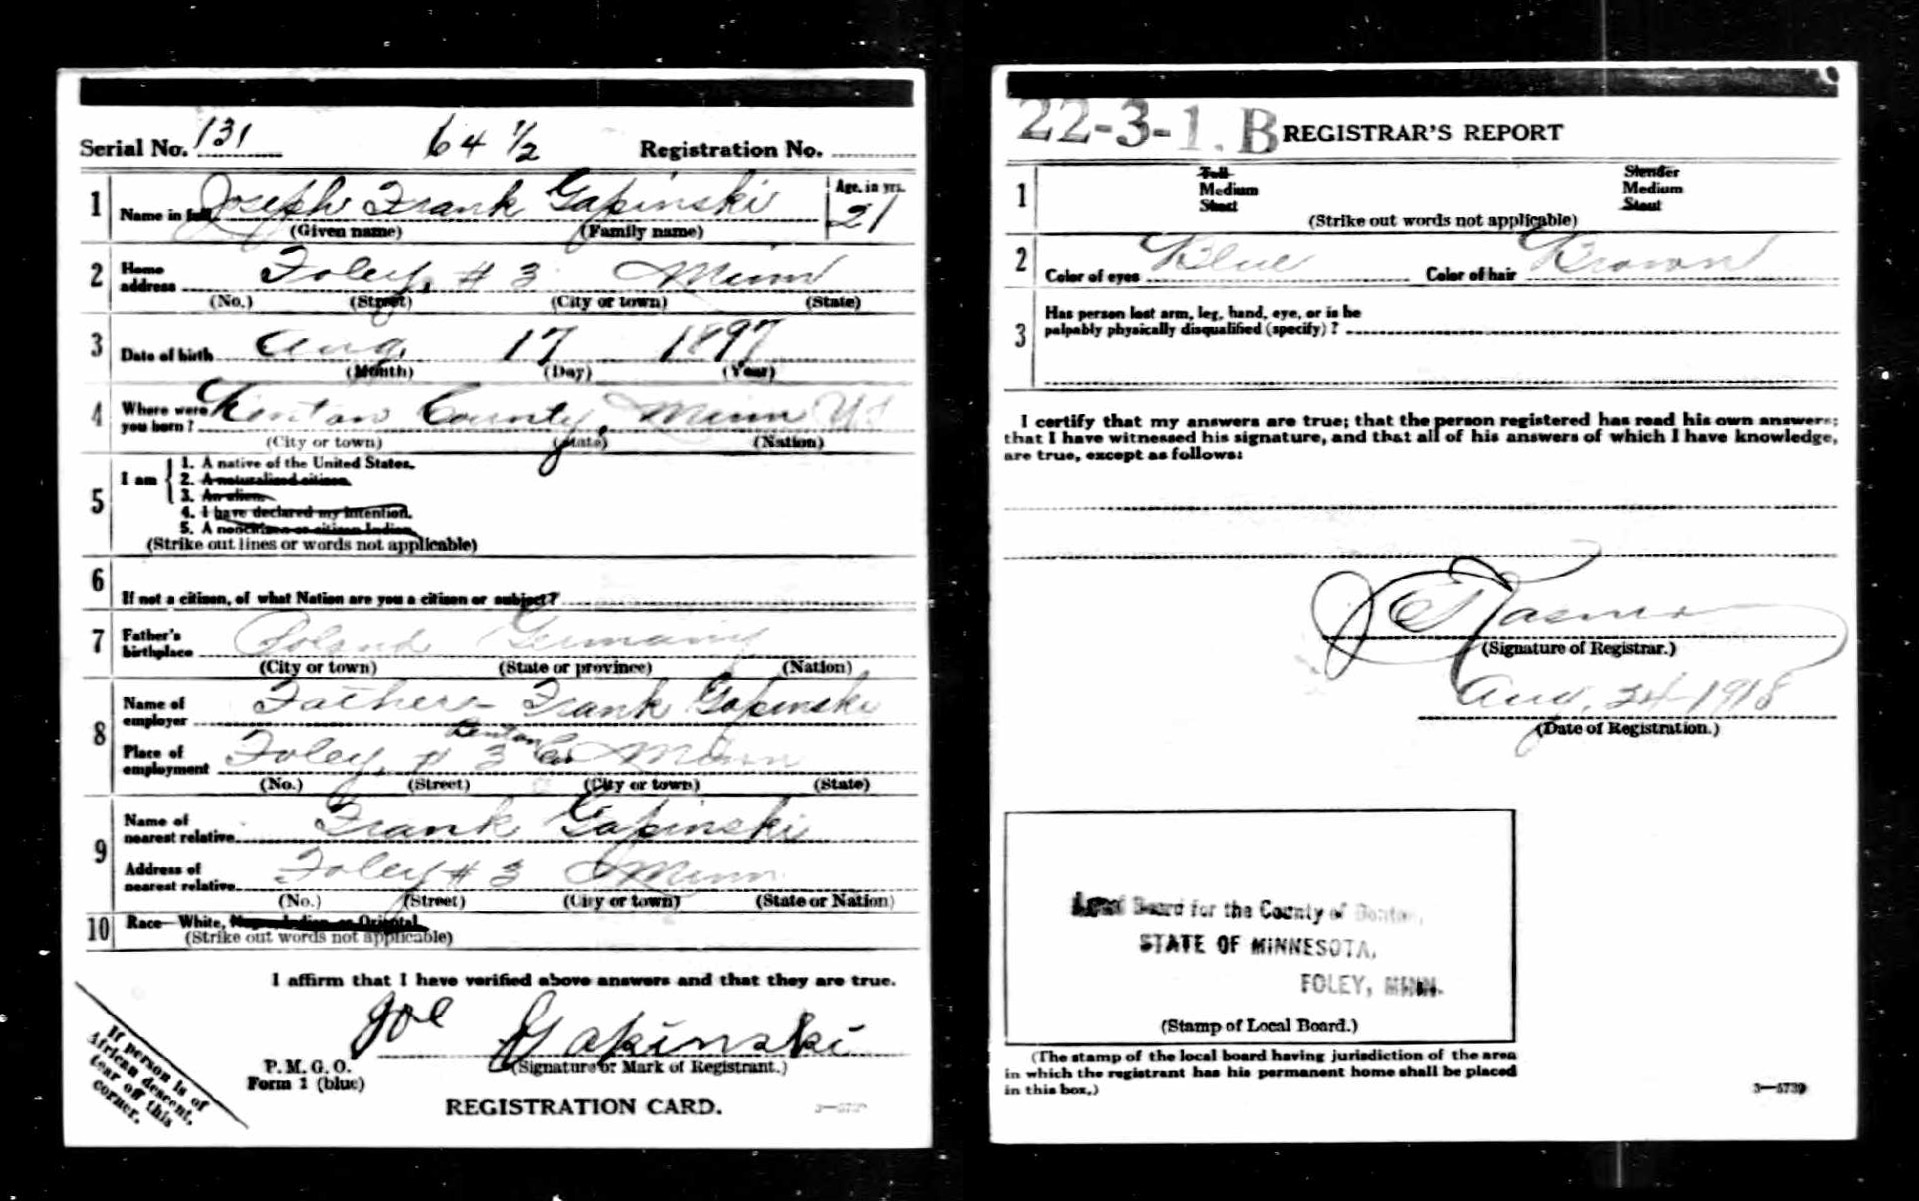 Serial No. 131 64 1/2 Registration No.
1 Name in full Joseph Frank Gapinski Age, in yrs. 21
(Given name) (Family name)
2 Home address Foley, # 3 Minn
(No.) (Street) (City or town) (State)
3 Date of birth Aug. 17 1897
(Month) (Day) (Year)
4 Where were you born? Benton County, Minn US
(City or town) (State) (Nation)
5 I am
1. A native of the United States.
2. A naturalized citizen.
3. An alien.
4. I have declared my intention.
5. A noncitizen or citizen Indian.
(Strike out lines or words not applicable)
6 If not a citizen, of what Nation are you a citizen or subject?
7 Father's birthplace Poland Germany
(City or town) (State or province) (Nation)
8 Name of employer Father - Frank Gapinski
Place of employment Foley, # 3 Benton Co Minn
(No.) (Street) (City or town) (State)
9 Name of nearest relative Frank Gapinski
Address of nearest relative Foley # 3 Minn
(No.) (Street) (City or town) (State or Nation)
10 Race—White, Negro, Indian, or Oriental
(Strike out words not applicable)
I affirm that I have verified above answers and that they are true.
Joe Gapinski
P. M. G. O.
Form 1 (blue)
(Signature or Mark of Registrant.)
REGISTRATION CARD.
If person is of
African descent,
tear off this
corner.
22-3-1. B REGISTRAR'S REPORT
1 Tall Slender
Medium Medium
Short Stout
(Strike out words not applicable)
2 Color of eyes Blue Color of hair Brown
3 Has person lost arm, leg, hand, eye, or is he
palpably physically disqualified (specify)?
I certify that my answers are true; that the person registered has read his own answers;
that I have witnessed his signature, and that all of his answers of which I have knowledge,
are true, except as follows:
(Signature of Registrar.)
Aug. 24 1918
(Date of Registration.)
Local Board for the County of Benton,
STATE OF MINNESOTA,
FOLEY, MINN.
(Stamp of Local Board.)
(The stamp of the local board having jurisdiction of the area
in which the registrant has his permanent home shall be placed
in this box.)
3—5739